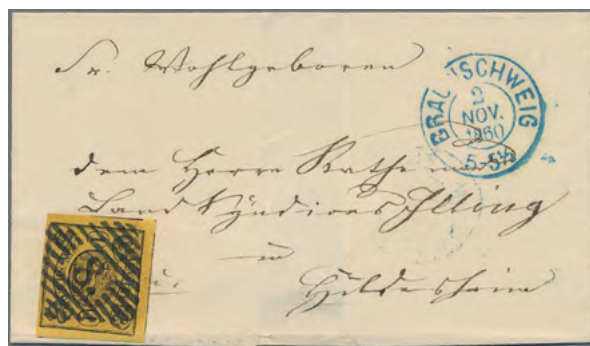 Sr. Wohlgeboren
BRAUNSCHWEIG
2
NOV.
1860
5-5½
dem Herrn Rathe
Land Syndicus Illing
in
Hildesheim
8